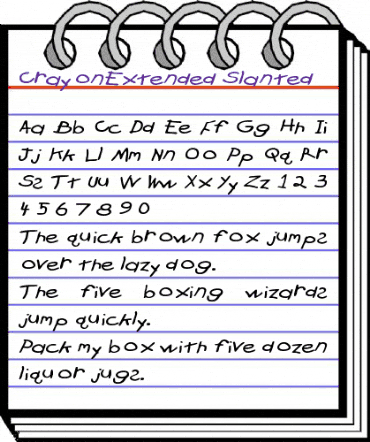 CrayonExtended Slanted
Aa Bb Cc Dd Ee Ff Gg Hh Ii
Jj Kk Ll Mm Nn Oo Pp Qq Rr
Ss Tt Uu Vv Ww Xx Yy Zz 1 2 3
4 5 6 7 8 9 0
The quick brown fox jumps
over the lazy dog.
The five boxing wizards
jump quickly.
Pack my box with five dozen
liquor jugs.